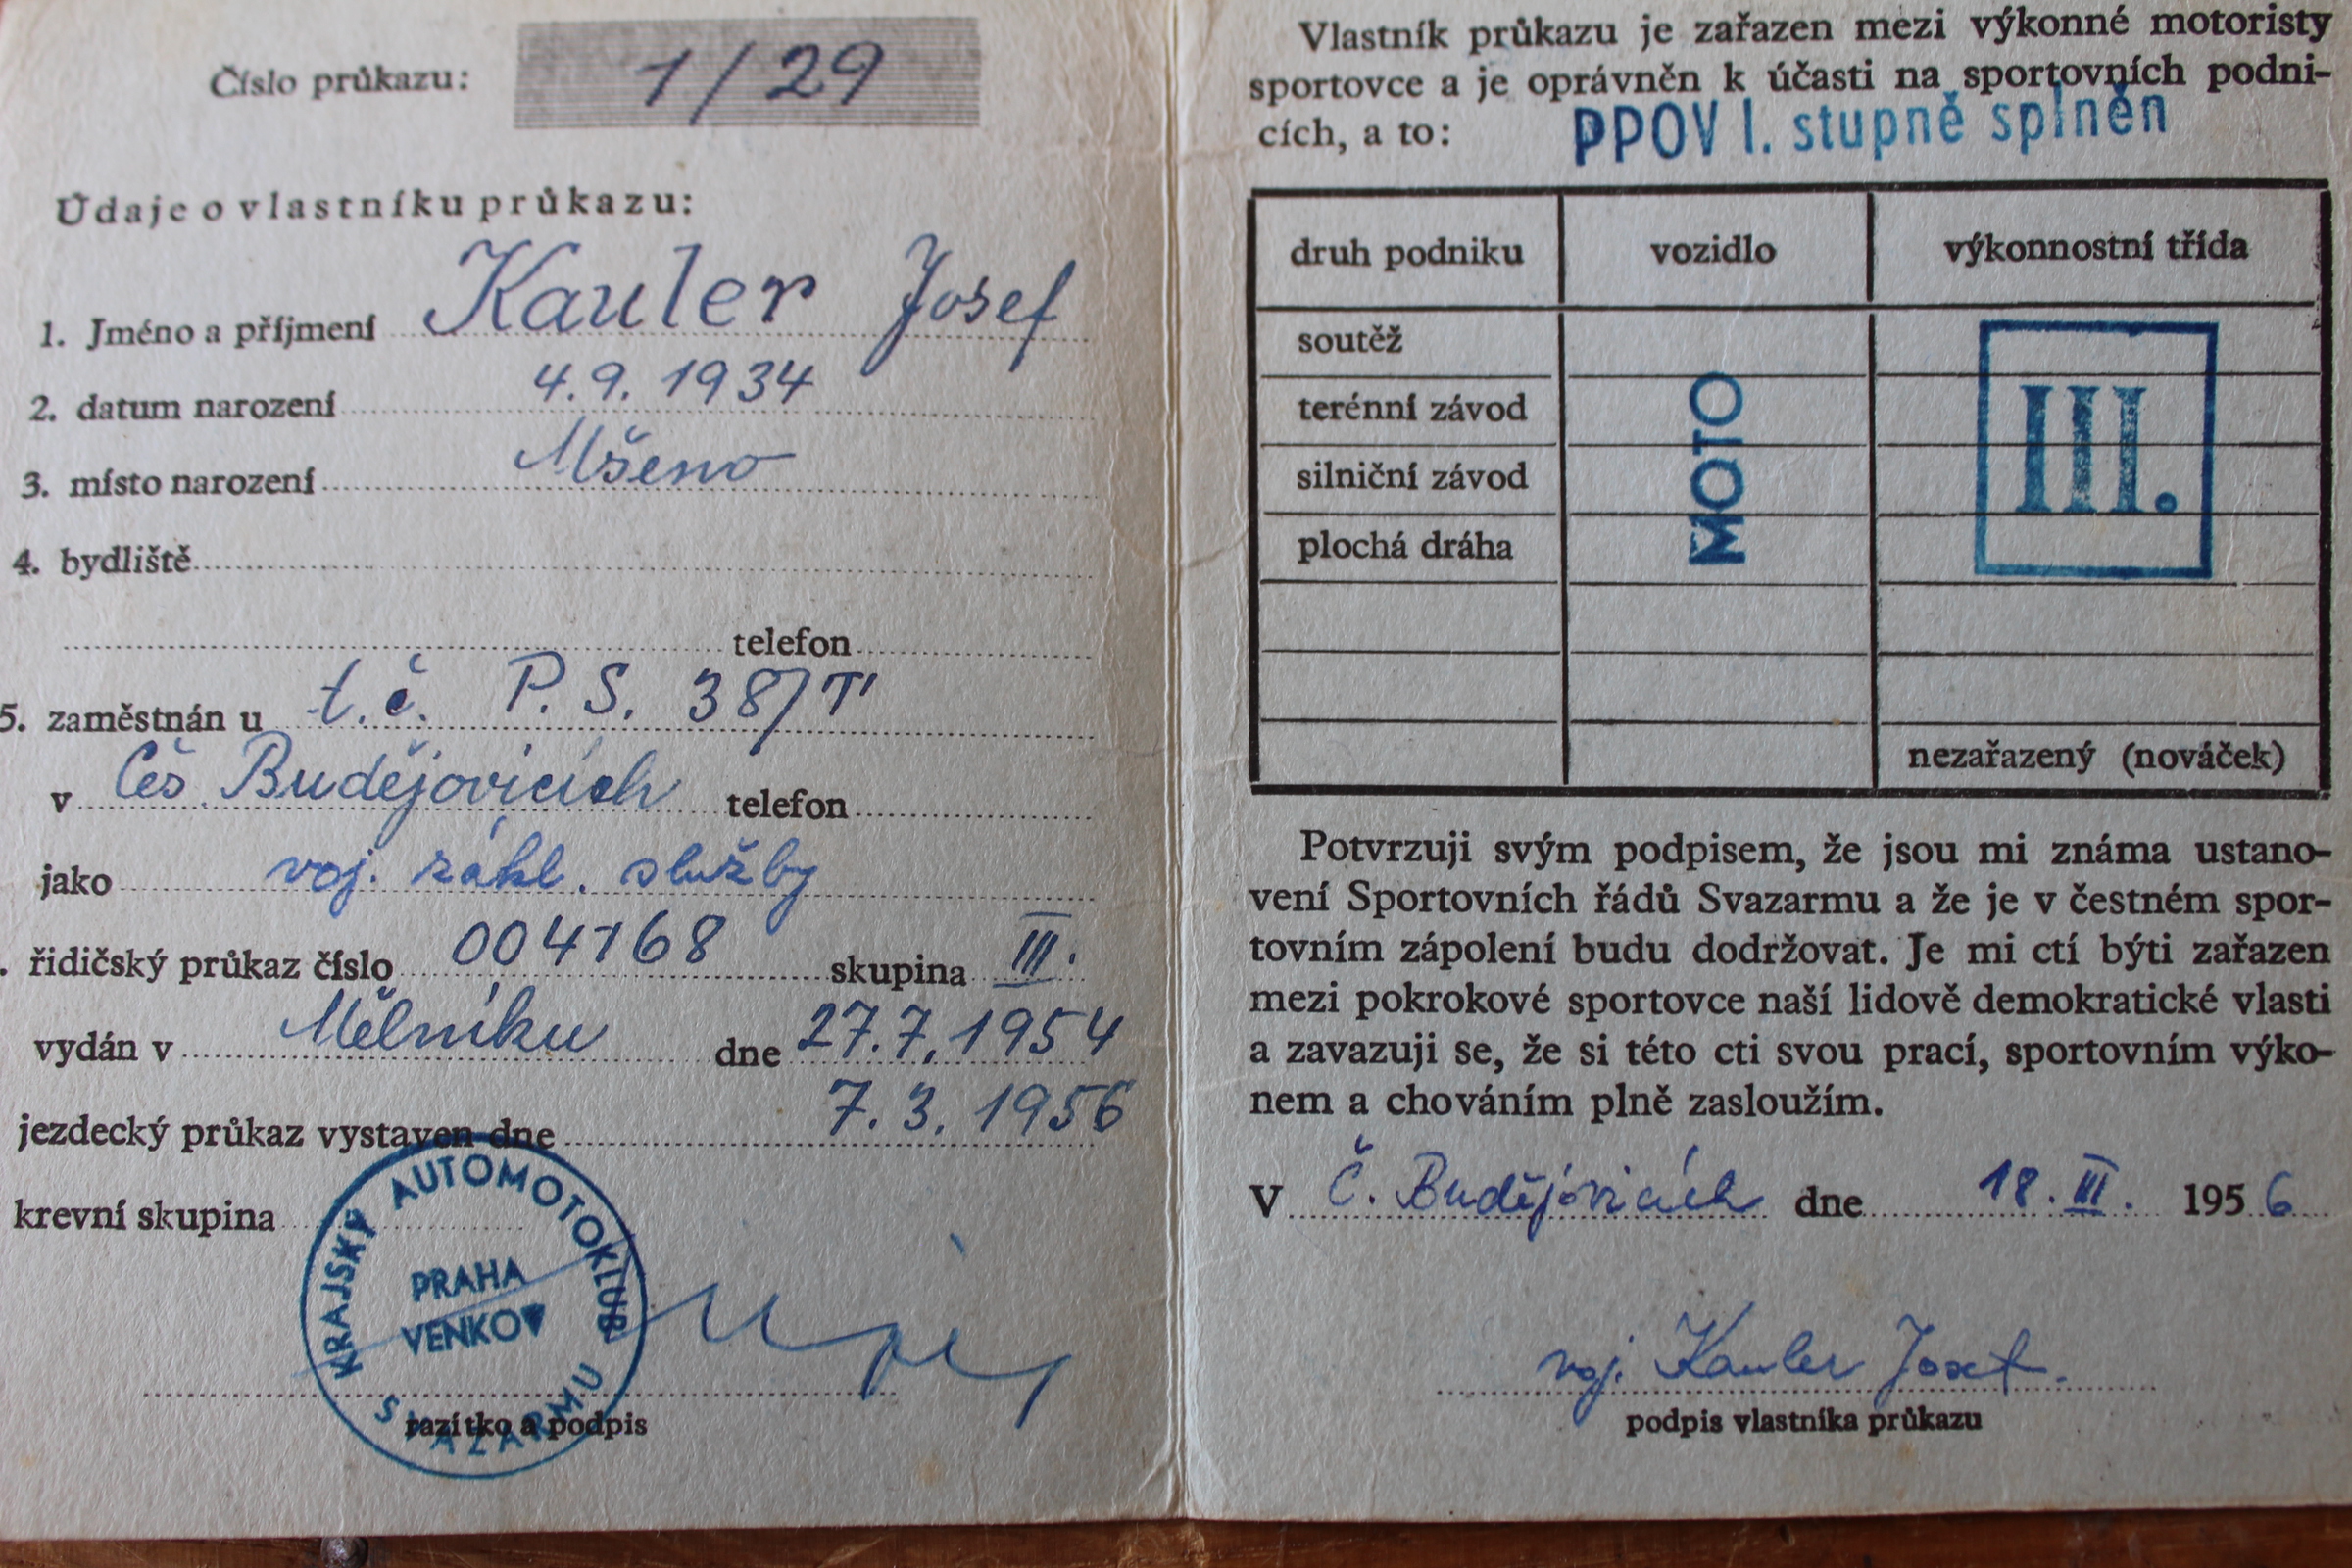 Číslo průkazu: 1/29
Údaje o vlastníku průkazu:
1. Jméno a příjmení Kauler Josef
2. datum narození 4.9.1934
3. místo narození Mšeno
4. bydliště
telefon
5. zaměstnán u t.č. P.S. 38/T
v Čes. Budějovicích telefon
jako voj. zákl. služby
řidičský průkaz číslo 004168 skupina III.
vydán v Mělníku dne 27.7.1954
jezdecký průkaz vystaven dne 7.3.1956
krevní skupina
KRAJSKÝ AUTOMOTOKLUB
PRAHA
VENKOV
SVAZARMU
razítko a podpis
Vlastník průkazu je zařazen mezi výkonné motoristy
sportovce a je oprávněn k účasti na sportovních podni-
cích, a to: PPOV I. stupně splněn
druh podniku vozidlo výkonnostní třída
soutěž
terénní závod
silniční závod
plochá dráha
MOTO
III.
nezařazený (nováček)
Potvrzuji svým podpisem, že jsou mi známa ustano-
vení Sportovních řádů Svazarmu a že je v čestném spor-
tovním zápolení budu dodržovat. Je mi ctí býti zařazen
mezi pokrokové sportovce naší lidově demokratické vlasti
a zavazuji se, že si této cti svou prací, sportovním výko-
nem a chováním plně zasloužím.
V Č. Budějovicích dne 18. III. 1956
voj. Kauler Josef.
podpis vlastníka průkazu